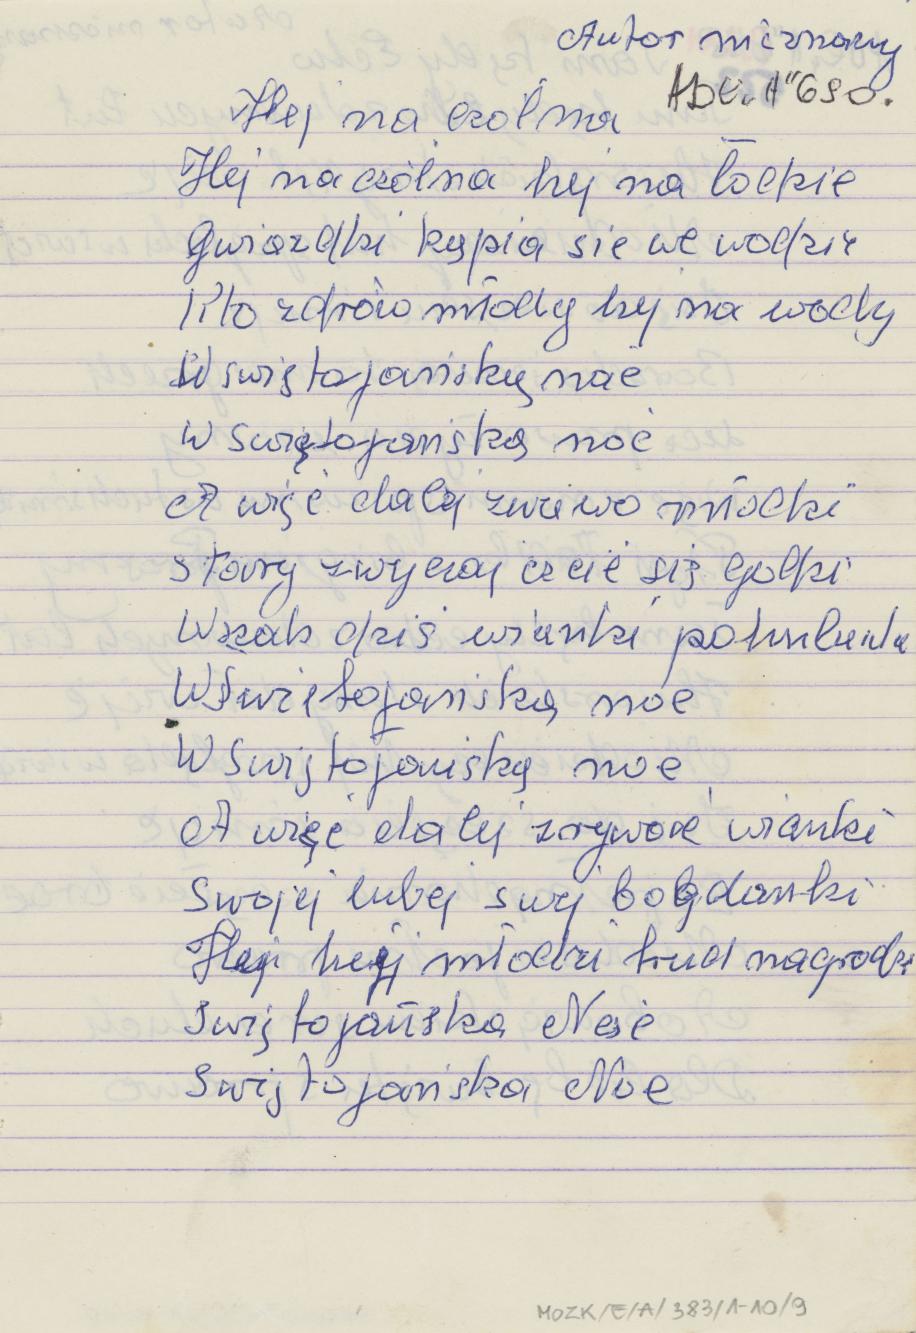 Autor nieznany
ADU. A"690.
Hej na czółna
Hej na czółna hej na łodzie
Gwiazdki kąpią sie we wodzie
Kto zdrów młody hej na wody
W świętojańską noc
W świętojańską noc
A więc dalej żwawo młodki
stary zwyczaj czcić się godzi
Wszak dziś wianki
W Świętojańską noc
W Świętojańską noc
A więc dalej zrywać wianki
Swojej lubej swej bogdanki
Hej hej młodzi trud nagrodzi
Świętojańska Noc
Świętojańska Noc
MOZK/E/A/383/1-10/9